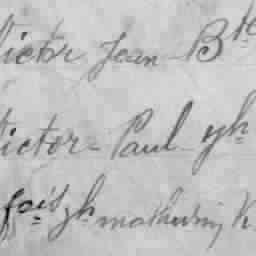 Victor Jean Bte
Victor Paul yh
fois yh mathurin K